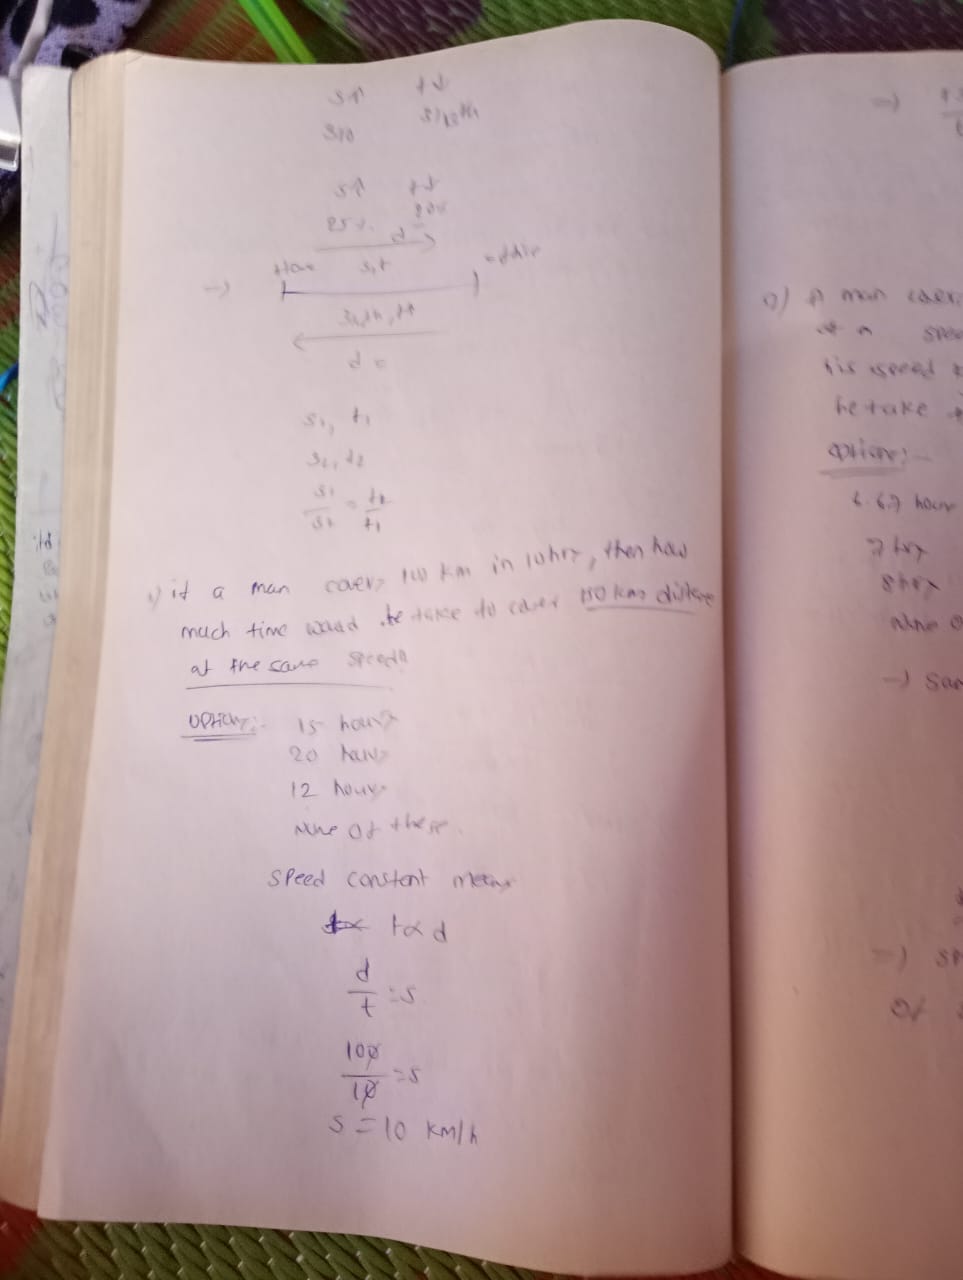 s↑ t↓
s↑ t↓
25%. 20%
d
s,t
d =
s1, t1
s2, t2
s1/s2 = t2/t1
1) if a man covers 100 km in 10hrs, then how
much time would he take to cover 150 kms distance
at the same speed?
options:- 15 hours
20 hours
12 hours
None of these.
speed constant means
t∝ d
d/t = s
100/10 = s
s = 10 km/h
=)
Q) A man
at a
his speed
he take
options:-
6.67 hour
7 hrs
8 hrs
None
Of